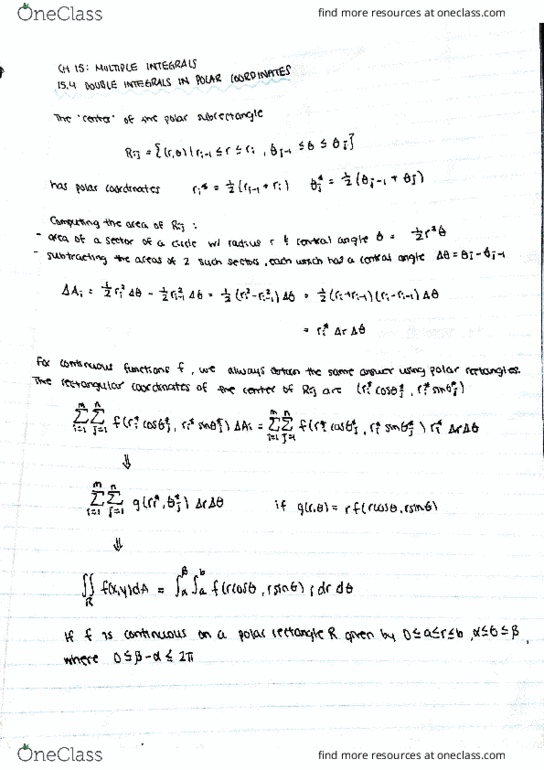 OneClass find more resources at oneclass.com
CH 15: MULTIPLE INTEGRALS
15.4 DOUBLE INTEGRALS IN POLAR COORDINATES
The 'center' of the polar subrectangle
Rij = {(r,θ) | ri-1 ≤ r ≤ ri , θj-1 ≤ θ ≤ θj}
has polar coordinates ri* = ½(ri-1 + ri) θj* = ½(θj-1 + θj)
Computing the area of Rij :
- area of a sector of a circle w/ radius r & central angle θ = ½r²θ
- subtracting the areas of 2 such sectors, each which has a central angle Δθ = θj - θj-1
ΔAi = ½ri²Δθ - ½ri-1²Δθ = ½(ri² - ri-1²)Δθ = ½(ri + ri-1)(ri - ri-1)Δθ
= ri* Δr Δθ
For continuous functions f, we always obtain the same answer using polar rectangles.
The rectangular coordinates of the center of Rij are (ri* cosθj*, ri* sinθj*)
m∑i=1 n∑j=1 f(ri* cosθj*, ri* sinθj*) ΔAi = m∑i=1 n∑j=1 f(ri* cosθj*, ri* sinθj*) ri* ΔrΔθ
⇓
m∑i=1 n∑j=1 g(ri*, θj*) ΔrΔθ if g(r,θ) = r f(rcosθ, rsinθ)
⇓
∬R f(x,y)dA = ∫αβ ∫ab f(rcosθ, rsinθ) r dr dθ
If f is continuous on a polar rectangle R given by 0≤a≤r≤b, α≤θ≤β,
where 0≤β-α≤2π
OneClass find more resources at oneclass.com